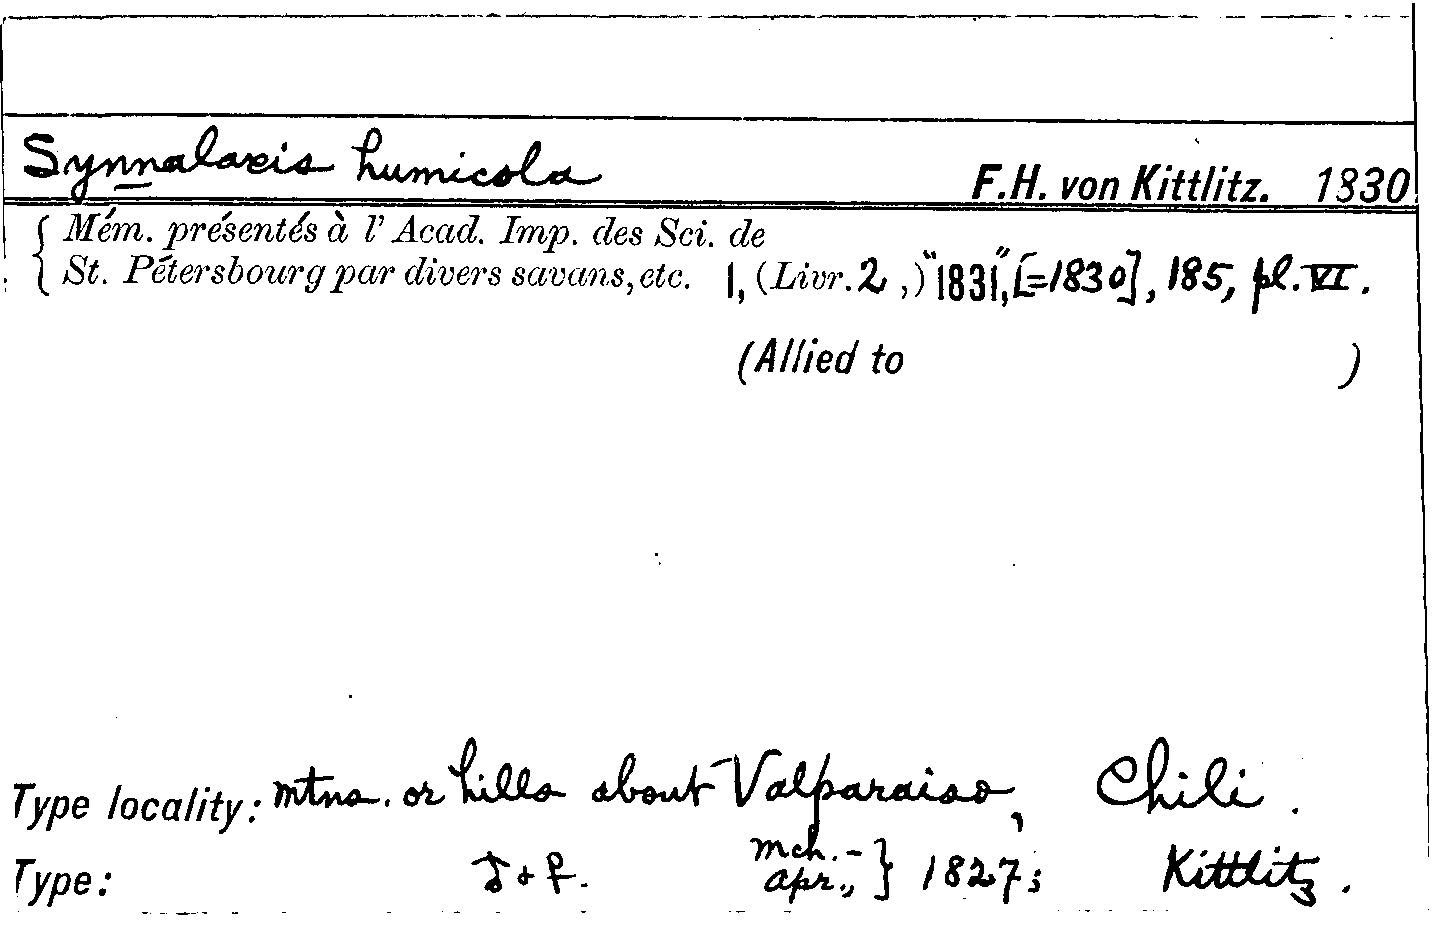 Synnalaxis humicola F.H. von Kittlitz. 1830
{ Mém. présentés à l' Acad. Imp. des Sci. de
St. Pétersbourg par divers savans, etc. 1, (Livr. 2 ,) "1831", [=1830], 185, pl. VI.
(Allied to )
Type locality: mtns. or hills about Valparaiso, Chili.
Type: ♂ + ♀. mch. - apr., } 1827; Kittlitz.